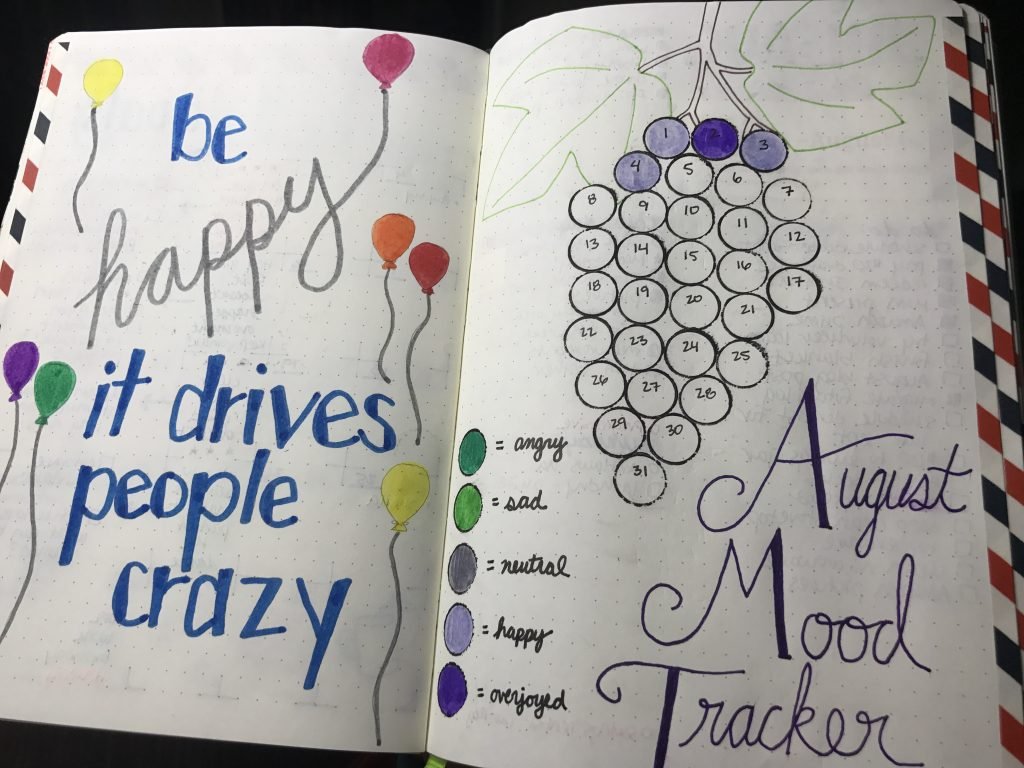 be
happy
it drives
people
crazy
1 2 3
4 5 6 7
8 9 10 11 12
13 14 15 16 17
18 19 20 21
22 23 24 25
26 27 28
29 30
31
= angry
= sad
= neutral
= happy
= overjoyed
August
Mood
Tracker